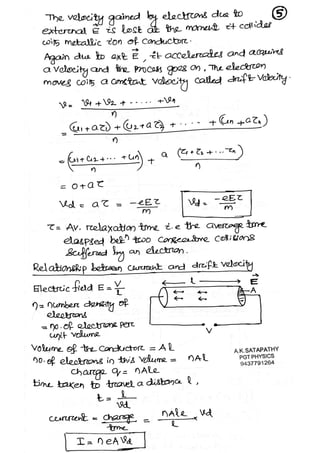 ⑤
The velocity gained by electrons due to
external E⃗ is lost at the moment it collides
with metallic ion of conductor.
Again due to ext E⃗, it accelerates and acquires
a velocity and the process goes on, The electron
moves with a constant velocity called drift velocity.
v = (v₁ + v₂ + ..... + vₙ) / n
= ((u₁ + aτ₁) + (u₂ + aτ₂) + ..... + (uₙ + aτₙ)) / n
= (u₁ + u₂ + ... + uₙ) / n + a (τ₁ + τ₂ + ... τₙ) / n
= 0 + aτ
vd = aτ = -eEτ / m    vd = -eEτ / m
τ = Av. relaxation time i.e the average time
elapsed betⁿ two consecutive collisions
suffered by an electron.
Relationship between current and drift velocity
Electric field E = V / l
l E⃗
A
V
n = number density of
electrons
= no. of electrons per
unit volume
Volume of the conductor = Al
A.K.SATAPATHY
PGT PHYSICS
9437791264
no. of electrons in this volume = nAl
charge q = nAle
time taken to travel a distance l,
t = l / vd
current = charge / time = nAle / l vd
I = neAvd